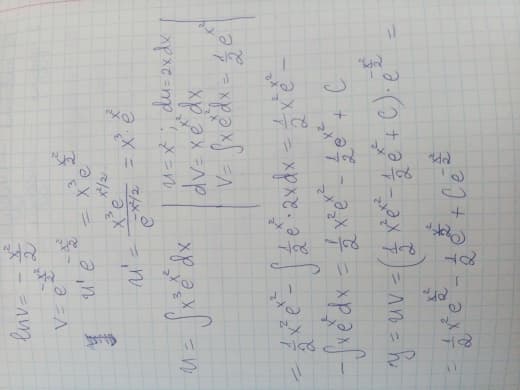 ln v = - x²/2
v = e^(-x²/2)
u' e^(-x²/2) = x³ e^(x²/2)
u' = x³ e^(x²/2) / e^(-x²/2) = x³ · e^(x²)
u = ∫ x³ e^(x²) dx | u = x² ; du = 2x dx
dv = x e^(x²) dx
v = ∫ x e^(x²) dx = 1/2 e^(x²) | =
= 1/2 x² e^(x²) - ∫ 1/2 e^(x²) · 2x dx = 1/2 x² e^(x²) -
- ∫ x e^(x²) dx = 1/2 x² e^(x²) - 1/2 e^(x²) + C
y = uv = (1/2 x² e^(x²) - 1/2 e^(x²) + C) · e^(-x²/2) =
= 1/2 x² e^(x²/2) - 1/2 e^(x²/2) + C e^(-x²/2)